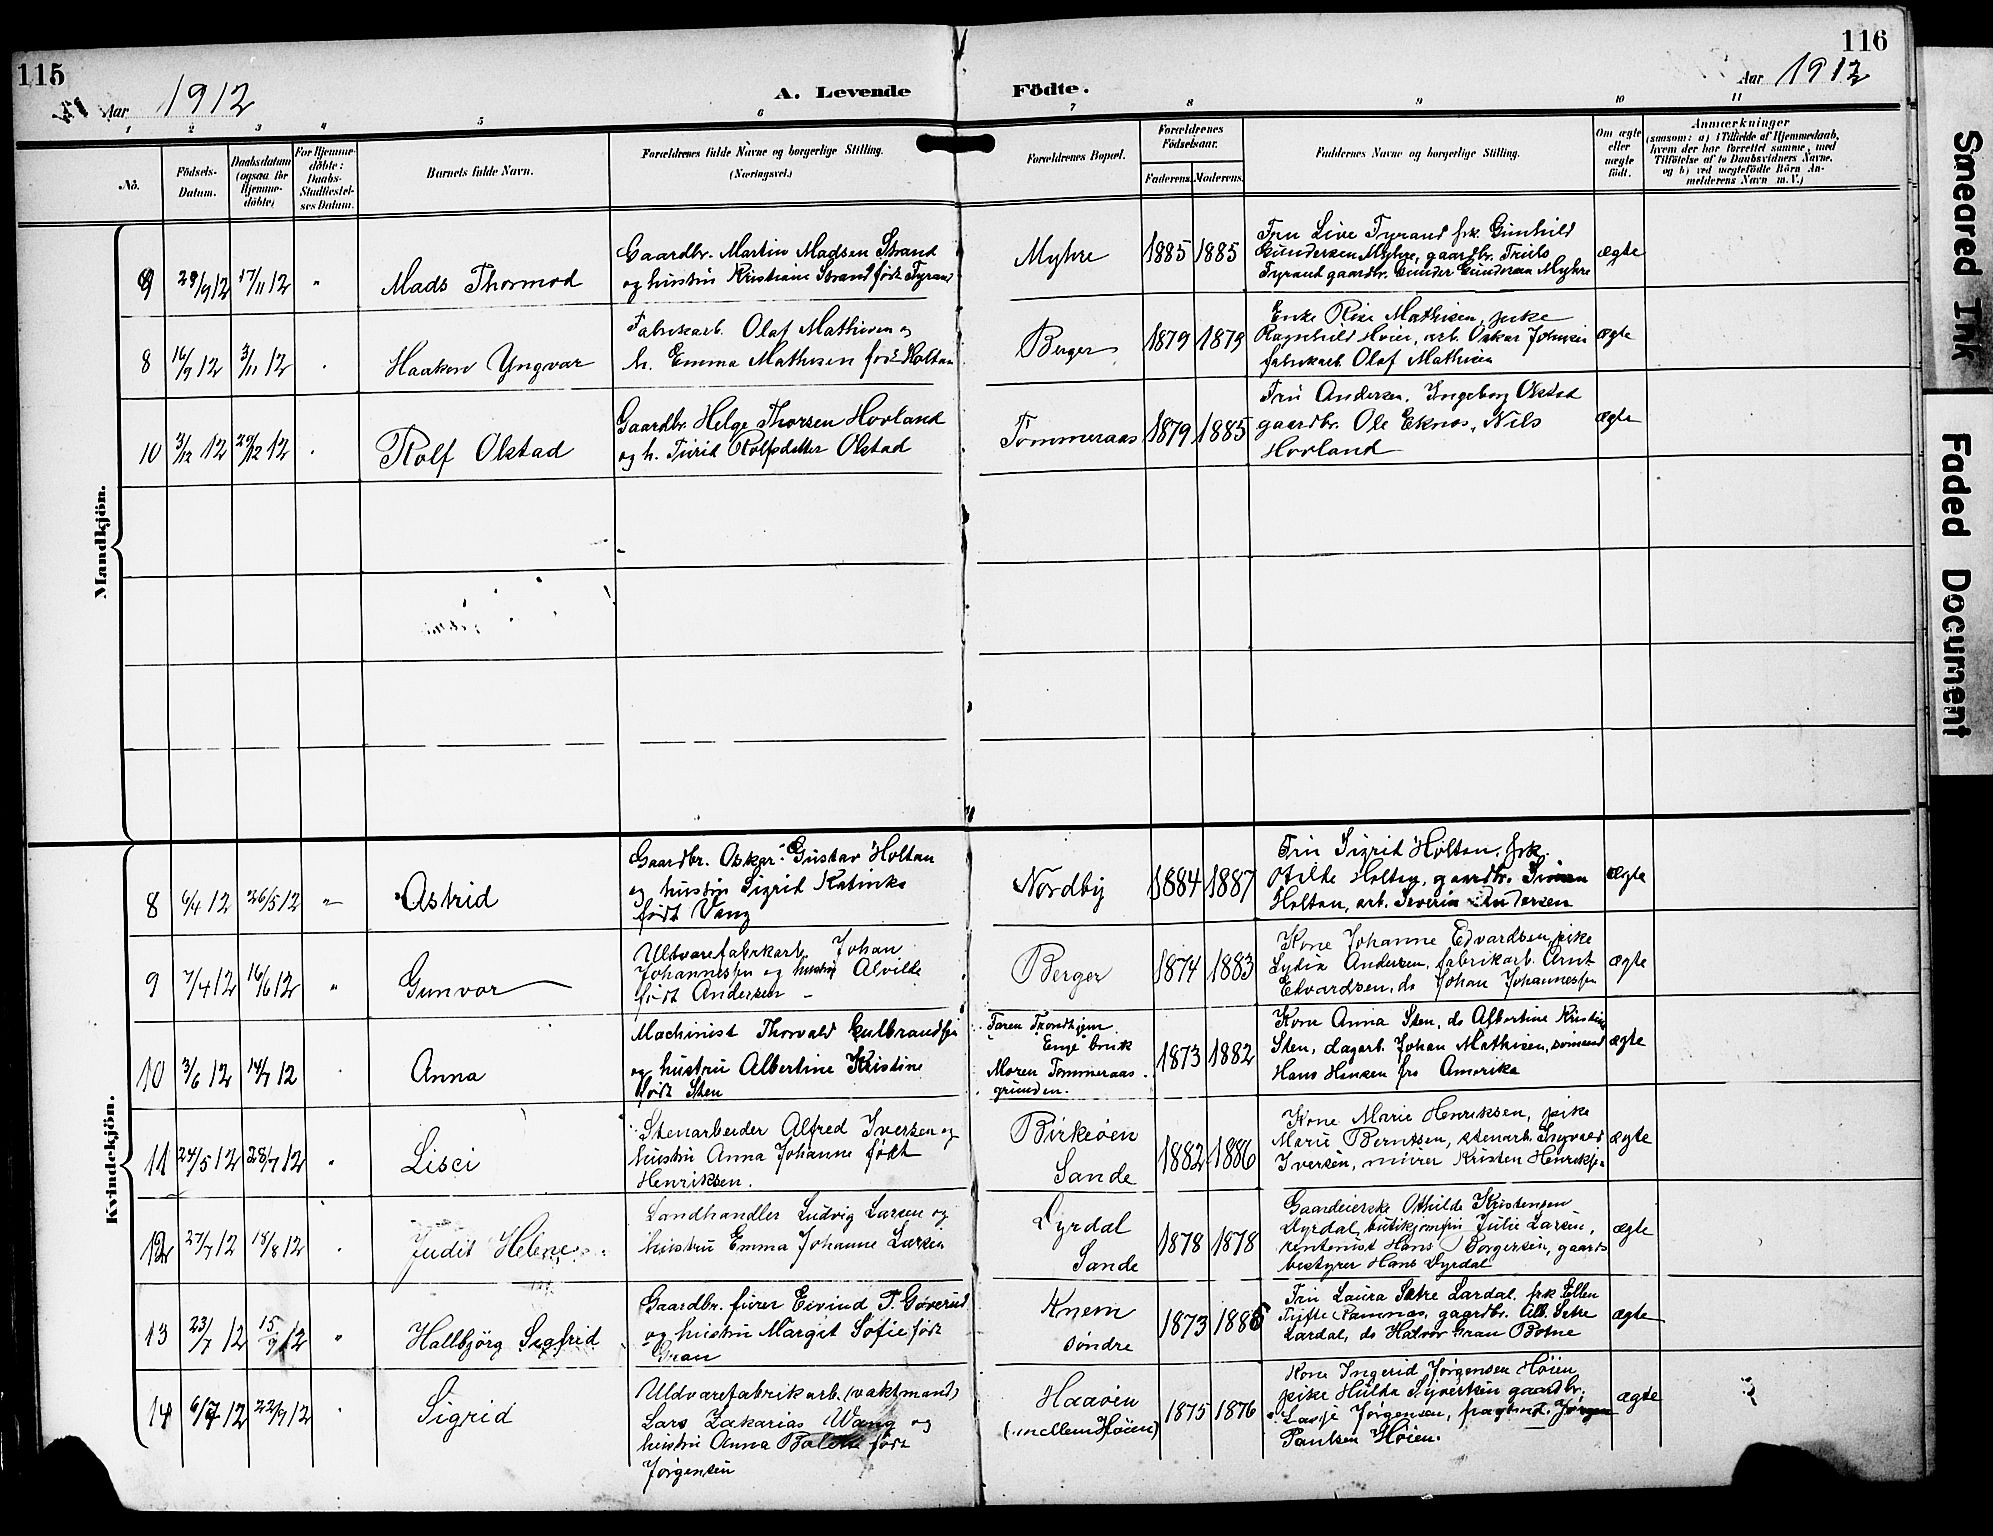 115
Aar 1912
A. Levende
Födte.
116
Aar 1912
1 2 3 4 5 6 7 8 9 10 11
No.
Födsels-
Datum.
Daabsdatum
(ogsaa for
Hjemme-
döbte)
For Hjemme-
döbte:
Daabs-
Stadfæstel-
ses Datum.
Barnets fulde Navn.
Forældrenes fulde Navne og borgerlige Stilling.
(Næringsvei.)
Forældrenes Bopæl.
Forældrenes
Födselsaar.
Faderens. Moderens.
Faddernes Navne og borgerlige Stilling.
Om ægte
eller
uægte
födt.
Anmærkninger
(saasom: a) i Tilfælde af Hjemmedaab,
hvem der har forrettet samme, med
Tilföielse af to Daabsvidners Navne,
og b) ved uægtefödte Börn An-
melderens Navn m. V.)
Mandkjön.
9 29/9 12 17/11 12 " Mads Thormod
Gaardbr. Martin Madsen Strand
og hustru Kristiane Strand født Tyrand
Myhre 1885 1885
Fru Live Tyrand frk. Gunhild
Gundersen Myhre, gaardbr. Truls
Tyrand gaardbr. Gunder Gundersen Myhre
ægte
8 16/9 12 3/11 12 Haakon Yngvar
Fabrikarb. Olaf Mathisen og
h. Emma Mathisen født Holtan
Berger 1879 1879
Enke Mathisen, pike
Ragnhild Høien, arb. Oskar Johnsen
fabrikarb. Olaf Mathisen
ægte
10 3/12 12 29/12 12 Rolf Olstad
Gaardbr. Helge Thorsen Hovland
og h. Turid Rolfsdatter Olstad
Tømmeraas 1879 1885
Fru Andersen, Ingeborg Olstad
gaardbr. Ole Eknes, Nils
Hovland
ægte
Kvindekjön.
8 6/4 12 26/5 12 " Astrid
Gaardbr. Oskar Gustav Holtan
og hustru Sigrid Katinka
født Vang
Nordby 1884 1887
Fru Sigrid Holtan, frk.
Otilde Holtan, gaardbr. Simen
Holtan, arb. Severin Andersen
ægte
9 7/4 12 16/6 12 " Gunvor
Uldvarefabrikarb. Johan
Johannessen og hustru Alvilde
født Andersen
Berger 1874 1883
Kone Johanne Edvardsen, pike
Lydia Andersen, fabrikarb. Arnt
Edvardsen, do Johan Johannessen
ægte
10 3/6 12 14/7 12 Anna
Machinist Thorvald Gulbrandsen
og hustru Albertine Kristine
født Sten
Faren Trondhjem
Enge bruk
Moren Tømmeraas
grunden.
1873 1882
Kone Anna Sten, do Albertine Kristine
Sten, dagarb. Johan Mathisen, sømand
Hans Hansen fra Amerika
ægte
11 24/5 12 28/7 12 " Lisei
Stenarbeider Alfred Iversen og
hustru Anna Johanne født
Henriksen.
Birkeøen
Sande
1882 1886
Kone Marie Henriksen, pike
Marie Berntsen, stenarb. Sigvald
Iversen, murer Kristen Henriksen
ægte
12 27/7 12 18/8 12 Judit Helene
Landhandler Ludvig Larsen og
hustru Emma Johanne Larsen
Dyrdal
Sande
1878 1878
Gaardeierske Othilde Kristensen
Dyrdal, butikjomfru Julie Larsen,
rentenist Hans Borgersen, gaards
bestyrer Hans Dyrdal
ægte
13 23/7 12 15/9 12 " Hallbjörg Sigfrid
Gaardbr. furer Eivind T. Gøverud
og hustru Margit Sofie født
Grau
Knem
søndre
1873 1886
Fru Laura Sætre Lardal, frk Ellen
Tufte Ramnæs, gaardbr. Alb. Sætre
Lardal, do Halvor Grau Botne
ægte
14 6/7 12 22/9 12 Sigrid
Uldvarefabrikarb. (vaktmand)
Lars Zakarias Wang og
hustru Anna født
Jørgensen
Haaøen
(mellem Høien)
1875 1876
Kone Ingerid Jørgensen Høien,
pike Hulda Syvertsen gaardbr.
Jørgensen, Jørgen
Paulsen Høien.
ægte
Smeared Ink
Faded Document